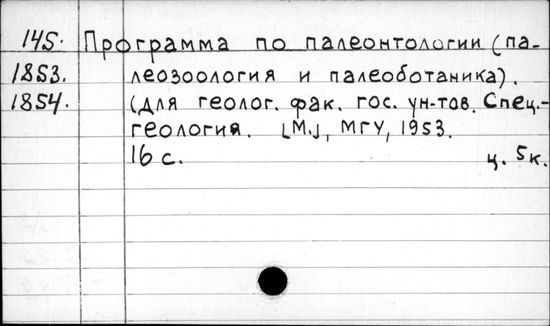 145. Программа по палеонтологии (па-
1853. леозоология и палеоботаника).
1854. (Для геолог. фак. гос. ун-тов. Спец.-
геология. [М.], МГУ, 1953.
16 с. ц. 5к.